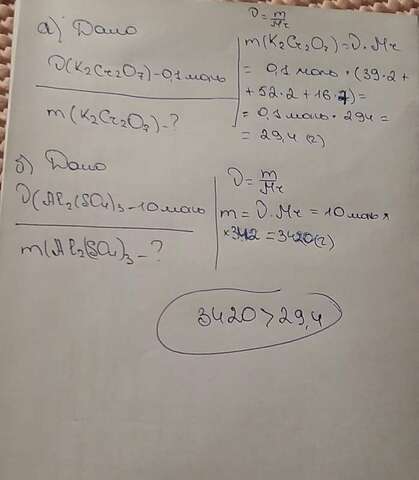 а) Дано
ν(K₂Cr₂O₇) - 0,1 моль
m(K₂Cr₂O₇) - ?
ν = m/Mr
m(K₂Cr₂O₇) = ν · Mr
= 0,1 моль · (39·2 +
+ 52·2 + 16·7) =
= 0,1 моль · 294 =
= 29,4 (г)
б) Дано
ν(Al₂(SO₄)₃ - 10 моль
m(Al₂(SO₄)₃ - ?
ν = m/Mr
m = ν · Mr = 10 моль ×
×342 = 3420 (г)
3420 > 29,4